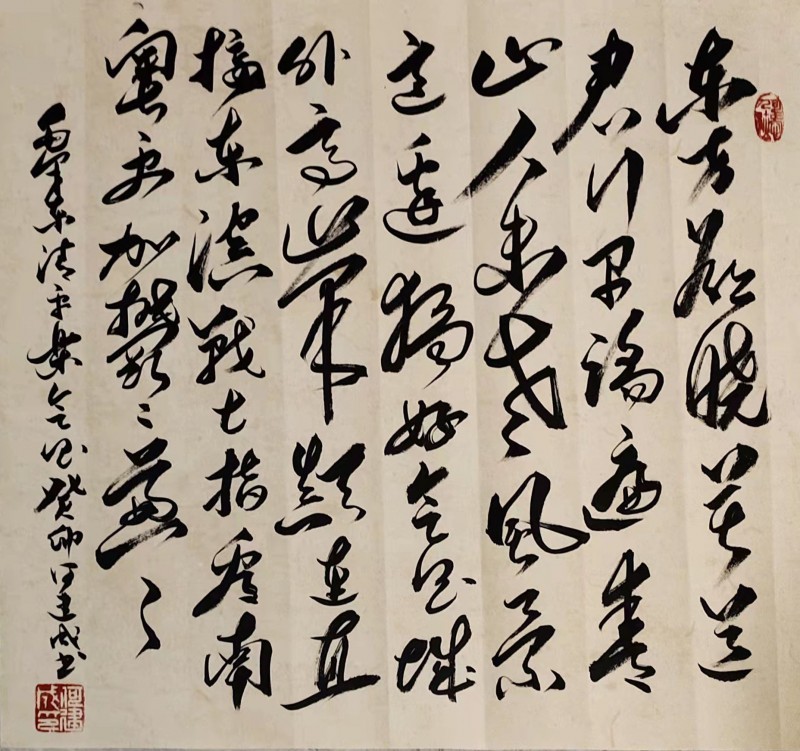 东方欲晓莫道
君行早踏遍青
山人未老风景
这边独好会昌城
外高峰颠连直
接东溟战士指看南
粤更加郁々葱々
毛泽东清平乐会昌癸卯 建成书